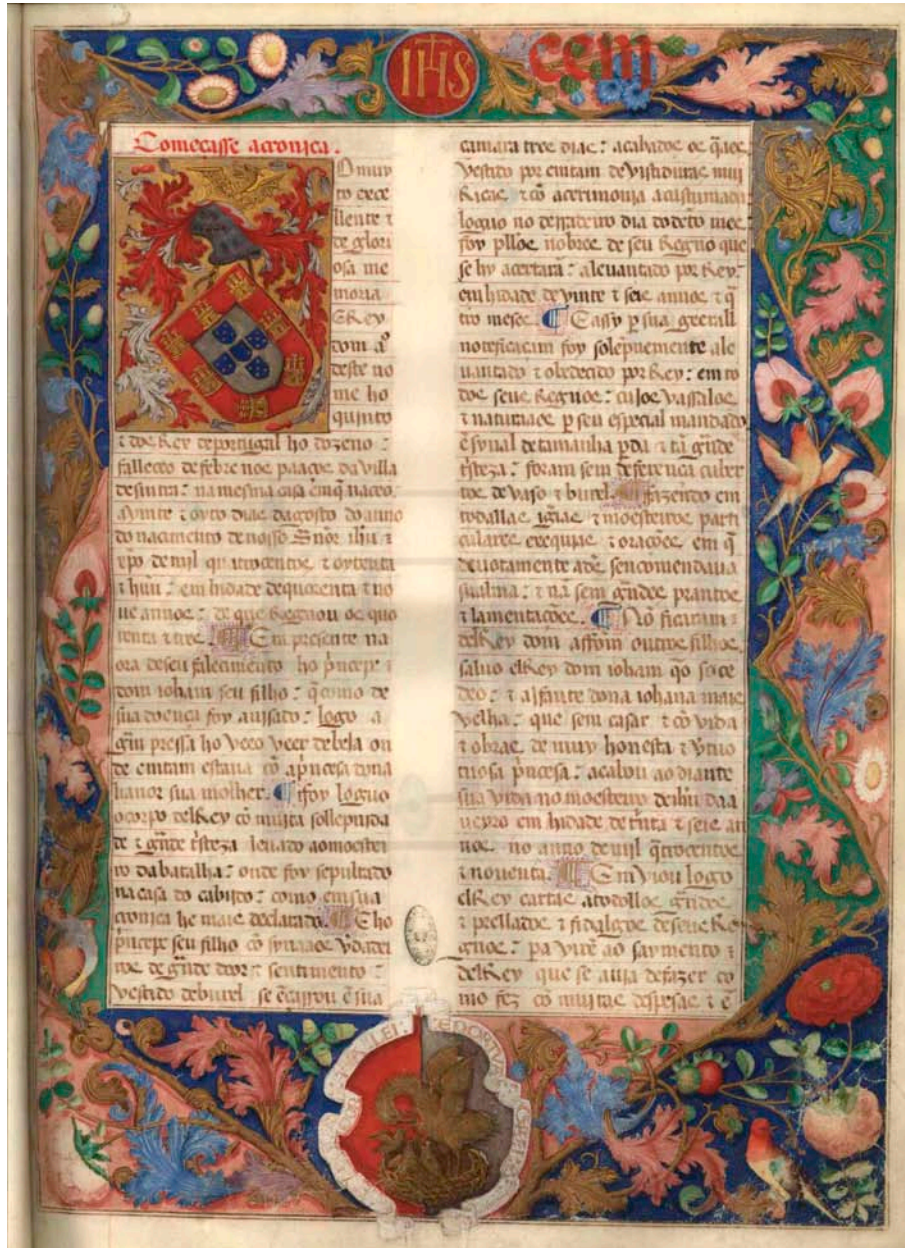 IHS
cem
Começasse acronica.
O muy
to exce
llente ⁊
de glori
osa me
moria
ElRey
dom aº
deste no
me ho
quinto
⁊ dos Rey deportugal ho dozeno :
falleceo de febre nos paaços da villa
desintra : na mesma casa ẽmq̃ naceo.
Avinte ⁊ oyto dias dagosto do anno
do nacimento de nosso Sñor ihũ ⁊
xp̃o de mil quatrocentos ⁊ oytenta
⁊ hũu : em hidade dequorenta ⁊ no
ve annos : de que Regnou os quo
renta ⁊ tres. Em presente na
ora deseu falecimento ho p̃ncepe :
dom ioham seu filho : q̃como de
sua doença foy auisado : logo a
grã pressa ho veeo veer debeia on
de emtam estaua cõ ap̃ncesa dona
lianor sua molher. ifoy loguo
ocorpo delRey cõ muita sollepnida
de ⁊ grãde t̃steza leuado aomostei
ro dabatalha : onde foy sepultado
nacasa do cabido : como emsua
cronica he mais declarado. E ho
p̃ncepe seu filho cõ synaaes v̾dadei
ros de grãde door ⁊ sentimento :
vestido deburel se ẽçarrou ẽ sua
camara tres dias : acabados os q̃aes
vestido por emtam de vistiduras mui
Ricas ⁊ cõ acerimonia acustumada
loguo no derradeiro dia dodeto mes
foy pllos nobres de seu Regno que
se hy acertarã : aleuantado por Rey :
em hidade de vinte ⁊ seis annos ⁊ q̃
tro meses. E assy p sua geerall
noteficacam foy solẽpnemente ale
uantado ⁊ obedecido por Rey : em to
dos seus Regnos : cujos vassallos
⁊ naturaaes p seu especial mandado
ẽ synal detamanha p̱da ⁊ tã grãde
t̃steza : foram sem deferença cuber
tos de vaso ⁊ burel. fazendo em
todallas igr̃ias ⁊ moesteiros parti
culares exequias ⁊ oraçoões em q̃
deuotamente adõs sencomendaua
sualma : ⁊ nã sem grãdes prantos
⁊ lamentaçoões. Nõ ficaram :
delRey dom affom outros filhos
saluo elRey dom ioham q̃o soce
deo : ⁊ aIfante dona iohana mais
velha : que sem casar ⁊ cõ vida
⁊ obras de muy honesta ⁊ v̾tuo
tuosa p̃ncesa : acabou ao diante
sua vida no moesteiro deihũ daa
ueyro em hidade de trĩta ⁊ seis an
nos no anno de mil q̃trocentos
⁊ nouenta. Emviou logo
elRey cartas atodollos grãdes
⁊ prellados ⁊ fidalgos deseus Re
gnos : pa virẽ ao saymento :
delRey que se auia defazer co
mo fez cõ muitas despesas ⁊ ẽ